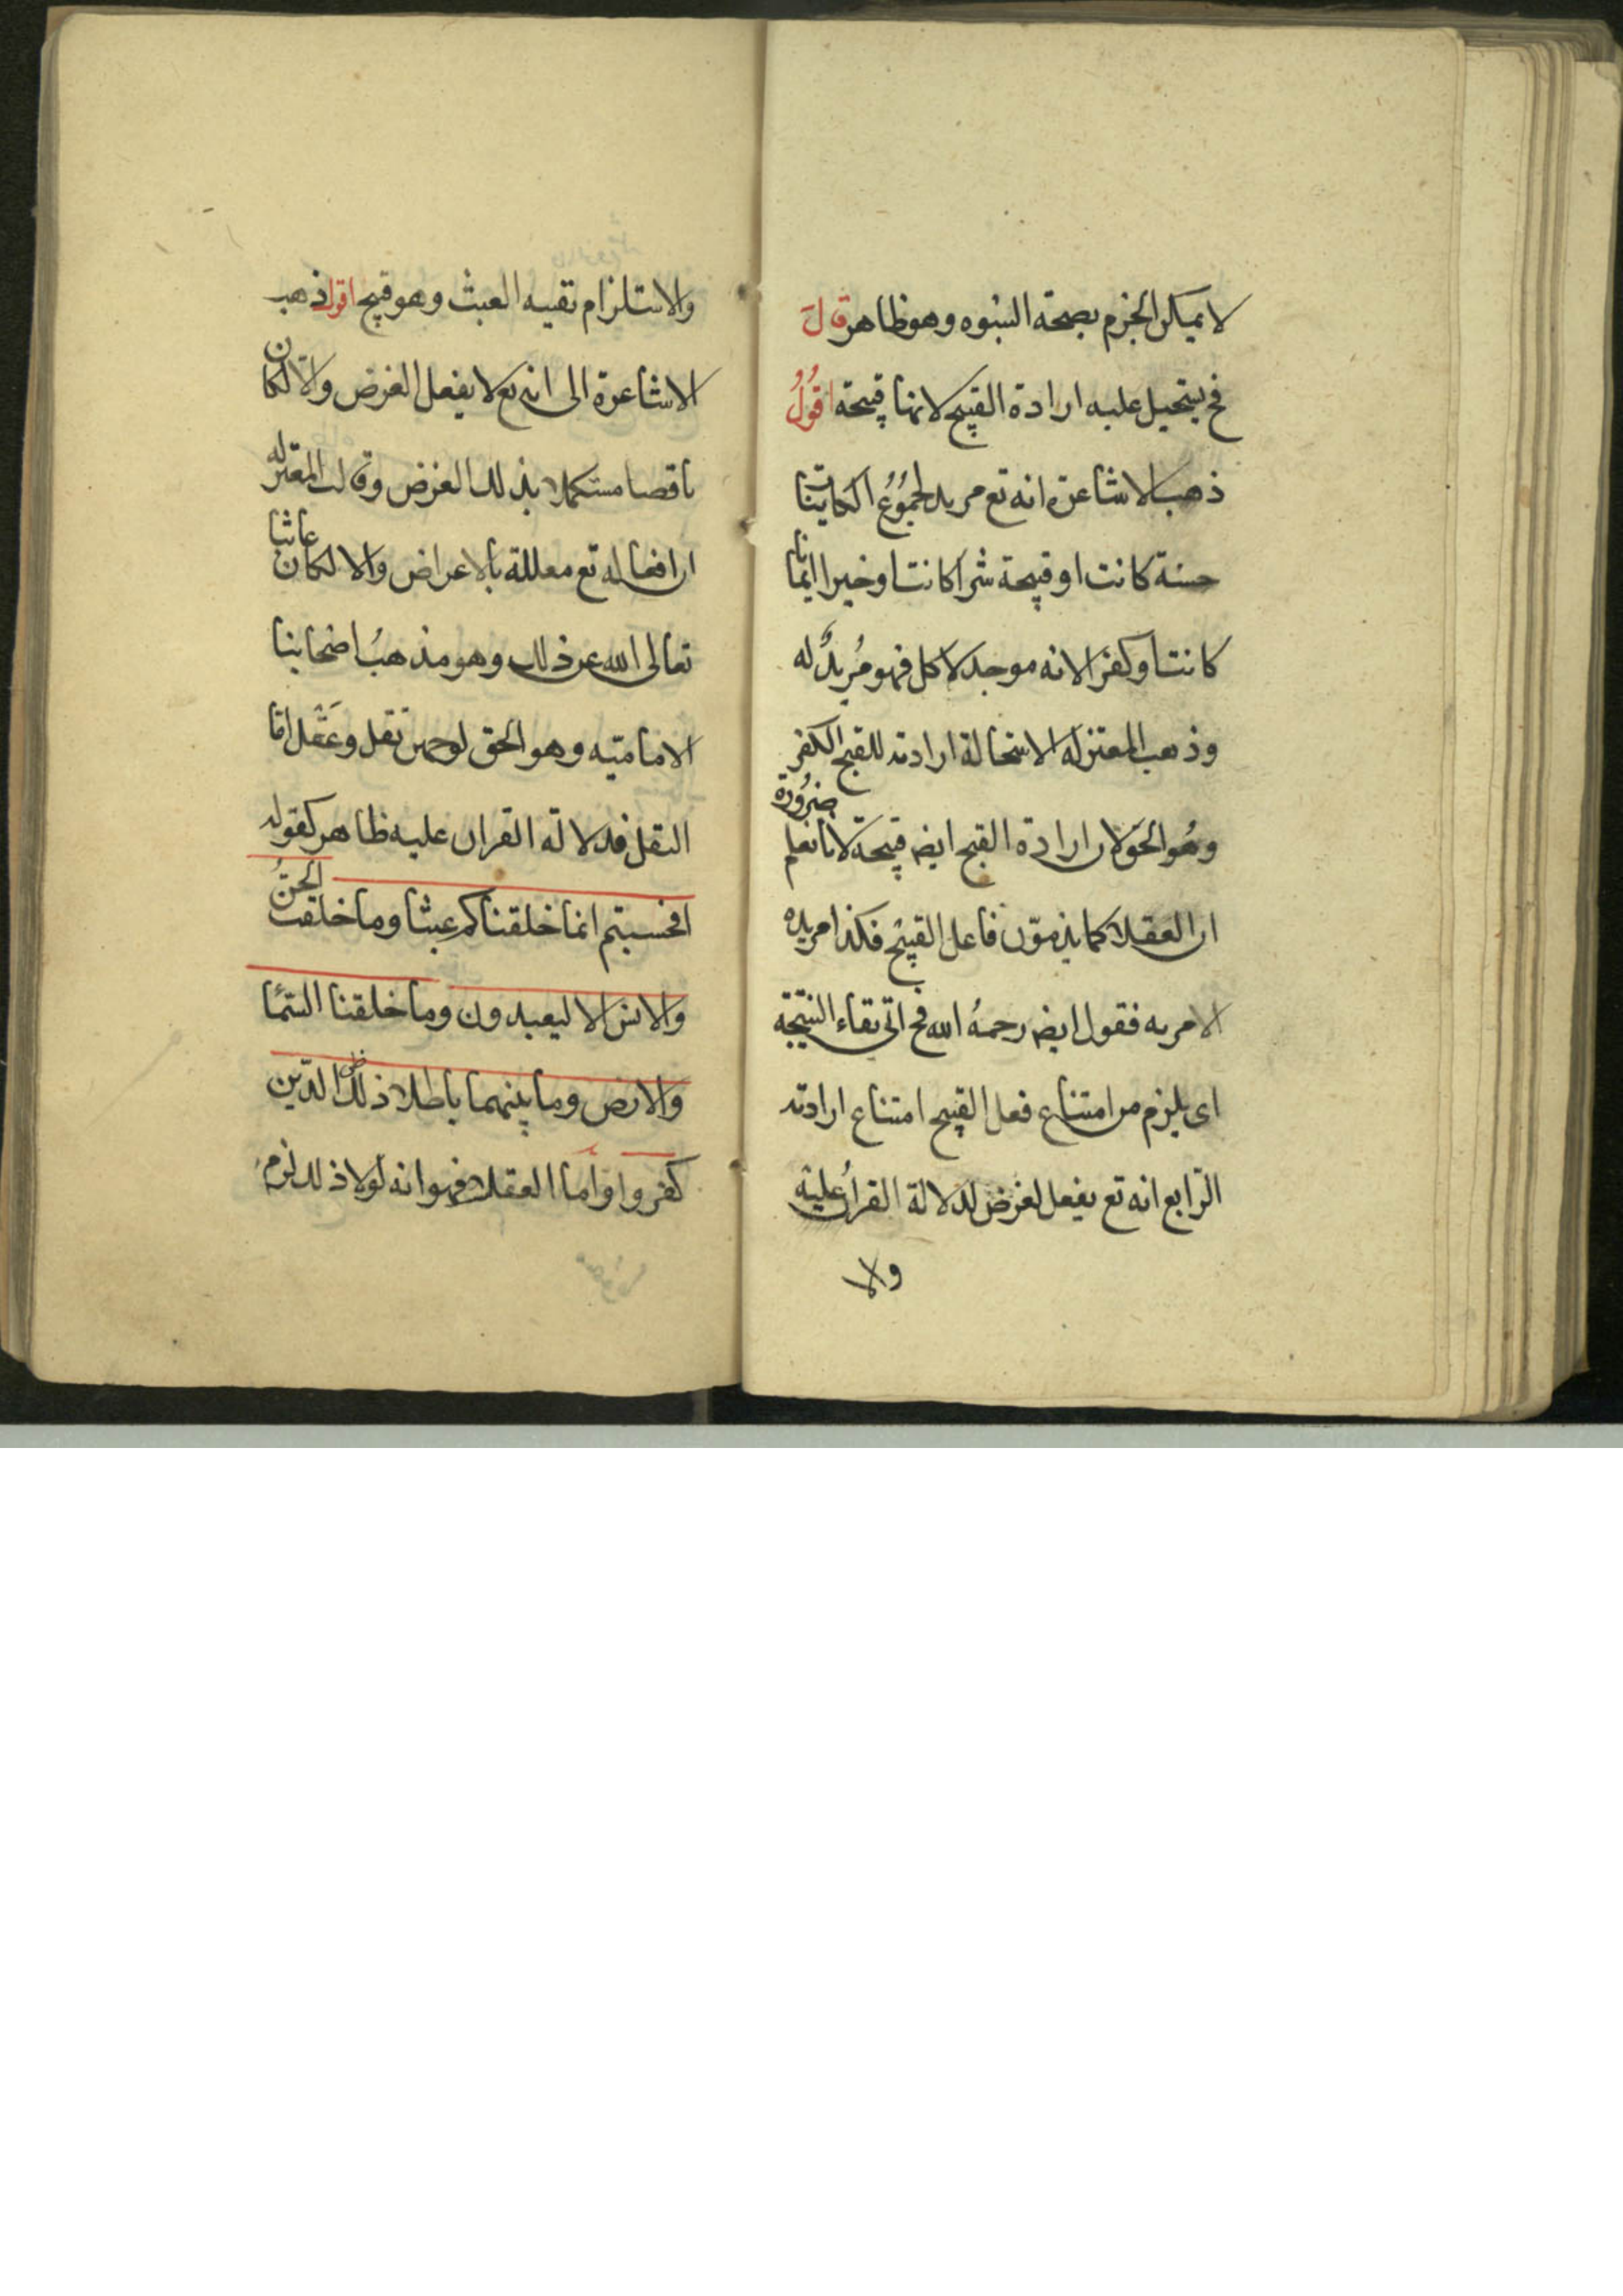 لا يمكن الجزم بصحة النبوه وهو ظاهر قال
فح يستحيل عليه ارادة القبيح لانها قبيحة اقول
ذهب الاشاعرة انه تع مريد لجموع الكاينات
حسنة كانت او قبيحة شرا كانت او خيرا ايمانا
كانت او كفرا لانه موجد لاكل فهو مريد له
وذهب المعتزله الاستحالة ارادته للقبح الكفر
وهو الحق لان ارادة القبح ايض قبيحة لانا نعلم ضرورة
ان العقلا كما يذمون فاعل القبيح فكذا مريده
الامر به فقول ايض رحمه الله فح اتى بفاء النتيجة
اى يلزم من امتناع فعل القبيح امتناع ارادته
الرابع انه تع يفعل لغرض لدلالة القران عليه
ولا
والاستلزام نفيه العبث وهو قبيح اقول ذهب
الاشاعرة الى انه تع لا يفعل الغرض والا لكان
ناقصا مستكملا بذلك الغرض وقالت المعتزله
ان افعاله تع معللة بالاعراض والا لكان عابثا
تعالى الله عن ذلك وهو مذهب اصحابنا
الاماميه وهو الحق لوجهين نقل وعقل اما
النقل فدلالة القران عليه ظاهر كقوله
افحسبتم انما خلقناكم عبثا وما خلقت الجن
والانس الا ليعبدون وما خلقنا السما
والارض وما بينهما باطلا ذلك ظن الذين
كفروا واما العقلا فهو انه لولا ذلك لزم